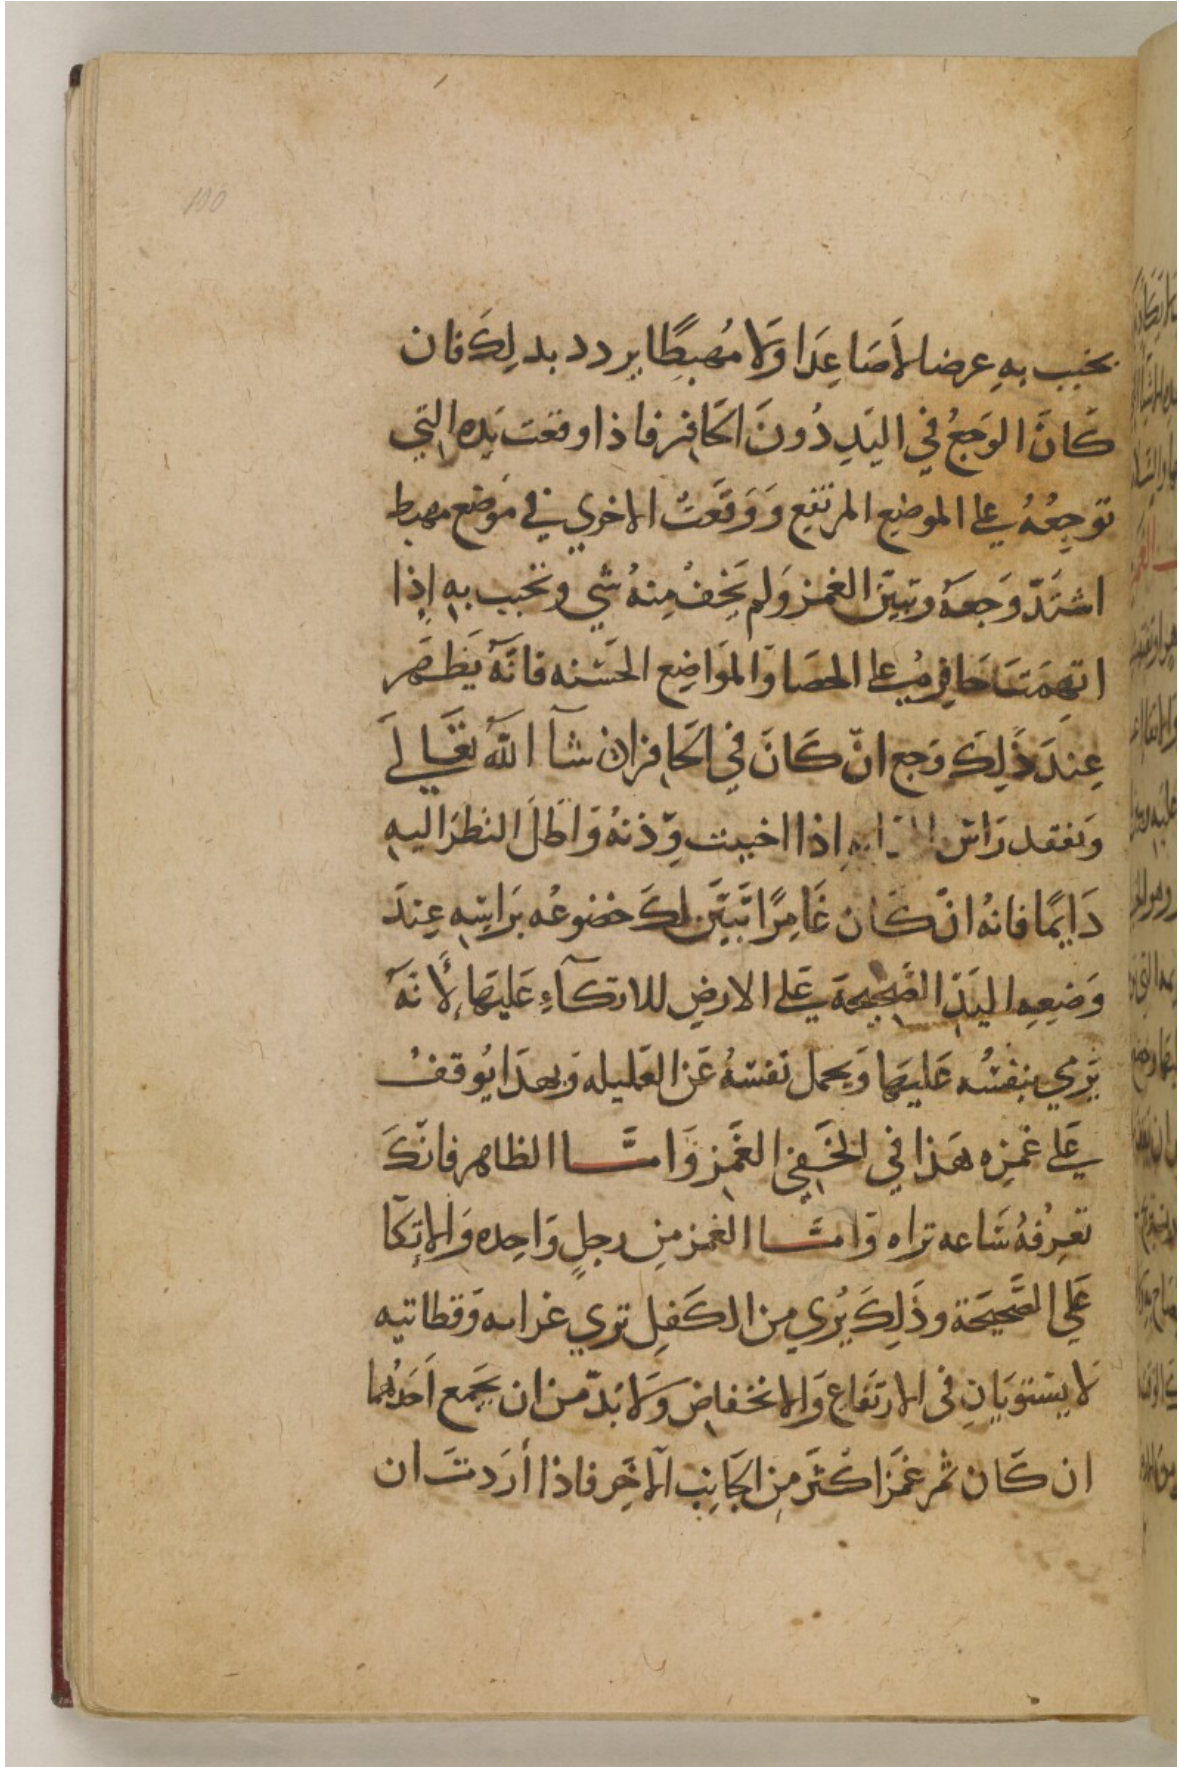 100
يخبب به عرضا لاَصَاعِدَا وَلا مُهبِطًا يردد بدلِكَ فان
كَانَ الوَجعُ في اليَدِ دُونَ الحَافِر فاذا وقعت يَده التي
توجِعُهُ علي الموضِع المرتفِع وَوَقَعَتْ الاخري في مَوضع مهبط
اشتَدّ وَجعَهُ وتبيّن الغمز وَلم يَخِفْ مِنهُ شي وتخبب به إذا
اتهمَتَ حَافِره علي الحصَا وَالموَاضِع الخشنه فانّهُ يَظهَر
عِندَ ذَلِكَ وَجع انّ كَانَ في الحَافر ان شآ اللّه تعَالَي
وَتفقد رَاسْ اذا اخببت وَاطَلَ النظرَ اليهِ
دَايمًا فانهُ انّ كَان غَامِزًا تَبَيَّن لكَ خضوعُه برَاسِه عِندَ
وَضعِهِ اليَدْ الصَّحِيحة عَلي الارضِ للاتكآءِ عَليهَا لأنّهُ
يَرمي بنفسُه عَليهَا وَيحمل نفسَهُ عَن العَليله وَبهذَا يُوقفُ
عَلي غمزِه هَذا في الخَفِي الغَمز وَامَّا الظاهر فانّكَ
تعرِفهُ سَاعه تراه وَامَّا الغمز مِن رِجلٍ وَاحِده وَالاتِكآ
عَلي الصَّحِيحَة وذَلِكَ يُرَي مِن الكَفلِ تري غرابه وَقطاتيه
لاَ يستويَانِ في الارتفَاعِ وَالانخفاض وَلاَ بدّ من ان يَجمع اَحَدُهما
ان كَان ثَم غمَز اكثَر مِن الجَانِب الآخَر فاذا أرَدتَ ان